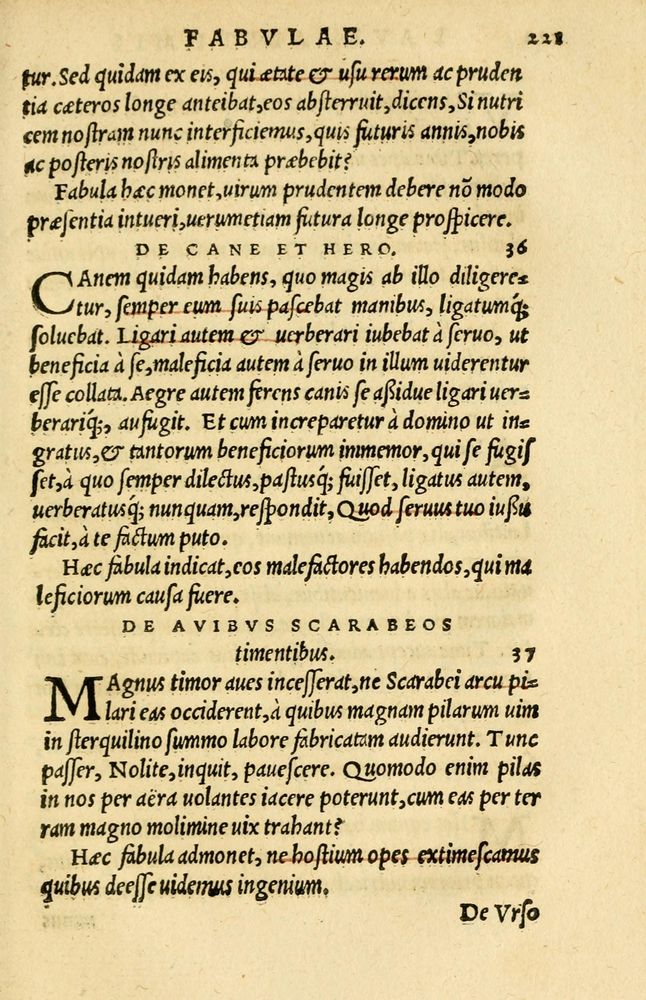 FABVLAE. 228
tur. Sed quidam ex eis, qui ætate & uſu rerum ac pruden
tia cæteros longe anteibat, eos abſterruit, dicens, Si nutri
cem noſtram nunc interficiemus, quis futuris annis, nobis
ac poſteris noſtris alimenta præbebit?
Fabula hæc monet, uirum prudentem debere nõ modo
præſentia intueri, uerumetiam futura longe proſpicere.
DE CANE ET HERO. 36
CAnem quidam habens, quo magis ab illo diligere=
tur, ſemper eum ſuis paſcebat manibus, ligatumq́;
ſoluebat. Ligari autem & uerberari iubebat à ſeruo, ut
beneficia à ſe, maleficia autem à ſeruo in illum uiderentur
eſſe collata. Aegre autem ferens canis ſe aßidue ligari uer=
berariq́;, aufugit. Et cum increparetur à domino ut in=
gratus, & tantorum beneficiorum immemor, qui ſe fugiſ
ſet, à quo ſemper dilectus, paſtusq́; fuiſſet, ligatus autem,
uerberatusq́; nunquam, reſpondit, Quod ſeruus tuo iuſſu
facit, à te factum puto.
Hæc fabula indicat, eos malefactores habendos, qui ma
leficiorum cauſa fuere.
DE AVIBVS SCARABEOS
timentibus. 37
MAgnus timor aues inceſſerat, ne Scarabei arcu pi=
lari eas occiderent, à quibus magnam pilarum uim
in ſterquilino ſummo labore fabricatam audierunt. Tunc
paſſer, Nolite, inquit, paueſcere. Quomodo enim pilas
in nos per aëra uolantes iacere poterunt, cum eas per ter
ram magno molimine uix trahant?
Hæc fabula admonet, ne hoſtium opes extimeſcamus
quibus deeſſe uidemus ingenium.
De Vrſo